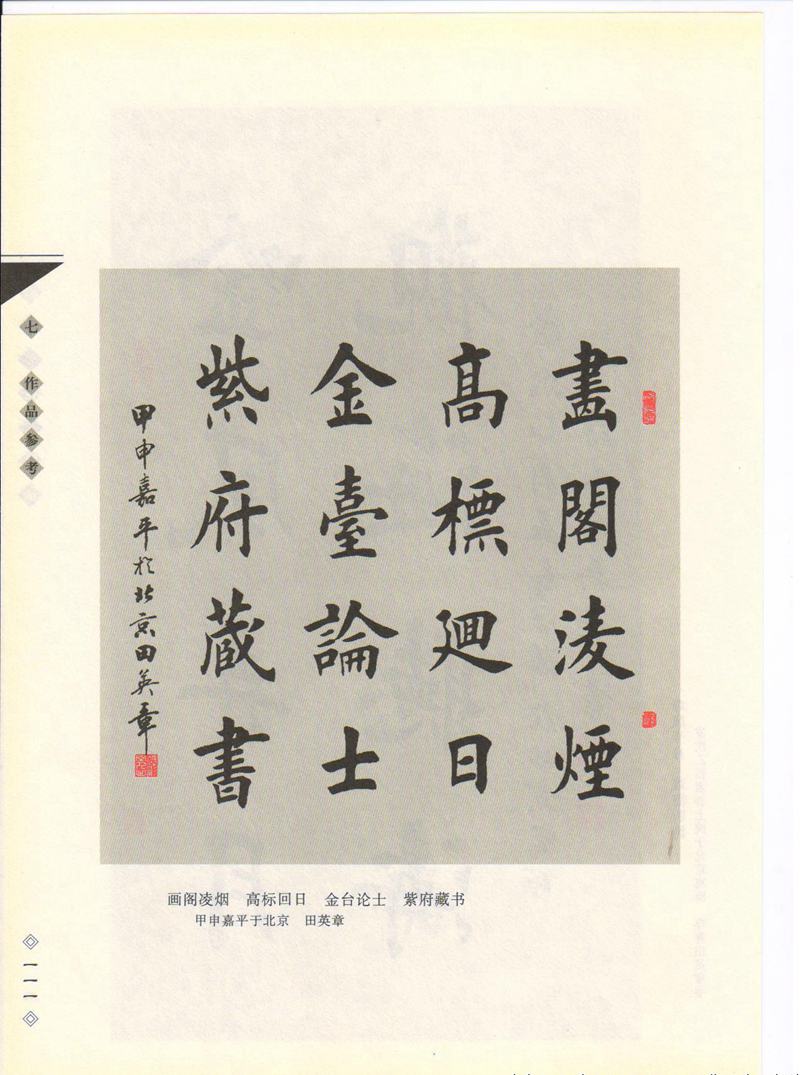 畫閣淩煙
高標廻日
金臺論士
紫府蔵書
甲申嘉平於北京田英章
画阁凌烟 高标回日 金台论士 紫府藏书
甲申嘉平于北京 田英章
七 作品参考
一一一